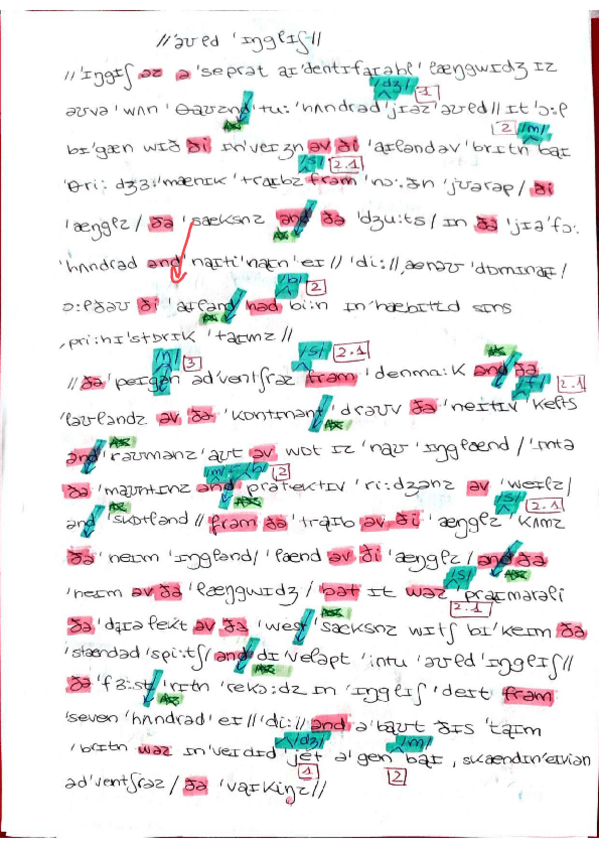 //ˈəʊld ˈɪŋglɪʃ//
//ˈɪŋglɪʃ əz ə ˈseprət aɪˈdentɪfaɪəbl ˈlæŋgwɪdʒ ɪz
/dʒ/ 1
əʊvə ˈwʌn ˈθaʊznd ˈtu: ˈhʌndrəd ˈjɪəz ˈəʊld // ɪt ˈɔ:l
2 /m/
bɪˈgæn wɪð ði ɪnˈveɪʒn əv ði ˈaɪləndəv ˈbrɪtn baɪ
/s/ 2.1
ˈθri: dʒɜ:ˈmænɪk ˈtraɪbz frəm ˈnɔ:ðn ˈjʊərəp / ði
ˈæŋglz / ðə ˈsæksnz ənd ðə ˈdʒu:ts / ɪn ðə ˈjɪə ˈfɔ:
ˈhʌndrəd ənd ˈnaɪti ˈnaɪn ˈeɪ // ˈdi: //
/b/ 2
ɔ:lðəʊ ði ˈaɪlənd həd bi:n ɪnˈhæbɪtɪd sɪns
ˌpri:hɪˈstɒrɪk ˈtaɪmz //
/ŋ/ 3 /s/ 2.1
// ðə ˈpeɪgən ədˈventʃrəz frəm ˈdenmɑ:k ənd ðə
2.1
ˈləʊləndz əv ðə ˈkɒntɪnənt ˈdrəʊv ðə ˈneɪtɪv ˈkelts
ənd ˈrəʊmənz ˈaʊt əv wɒt ɪz ˈnaʊ ˈɪŋglænd / ˈɪntə
2
ðə ˈmaʊntɪnz ənd prətektɪv ˈri:dʒənz əv ˈweɪlz /
/s/ 2.1
ənd ˈskɒtlənd // frəm ðə ˈtraɪb əv ði ˈæŋglz ˈkʌmz
ðə ˈneɪm ˈɪŋglənd / ˈlænd əv ði ˈæŋglz / ənd ðə
/s/
ˈneɪm əv ðə ˈlæŋgwɪdʒ / bət ɪt wəz ˈpraɪmərəli
2.1
ðə ˈdaɪəlekt əv ðə ˈwest ˈsæksnz wɪtʃ bɪˈkeɪm ðə
ˈstændəd ˈspi:tʃ / ənd dɪˈveləpt ˈɪntu ˈəʊld ˈɪŋglɪʃ //
ðə ˈfɜ:st ˈrɪtn ˈrekɔ:dz ɪn ˈɪŋglɪʃ ˈdeɪt frəm
ˈseven ˈhʌndrəd ˈeɪ // ˈdi: // ənd əˈbaʊt ðɪs ˈtaɪm
/dʒ/ /m/
ˈbrɪtn wəz ɪnˈveɪdɪd ˈjet əˈgen baɪ ˌskændɪnˈeɪvɪən
1 2
ədˈventʃrəz / ðə ˈvaɪkɪŋz //